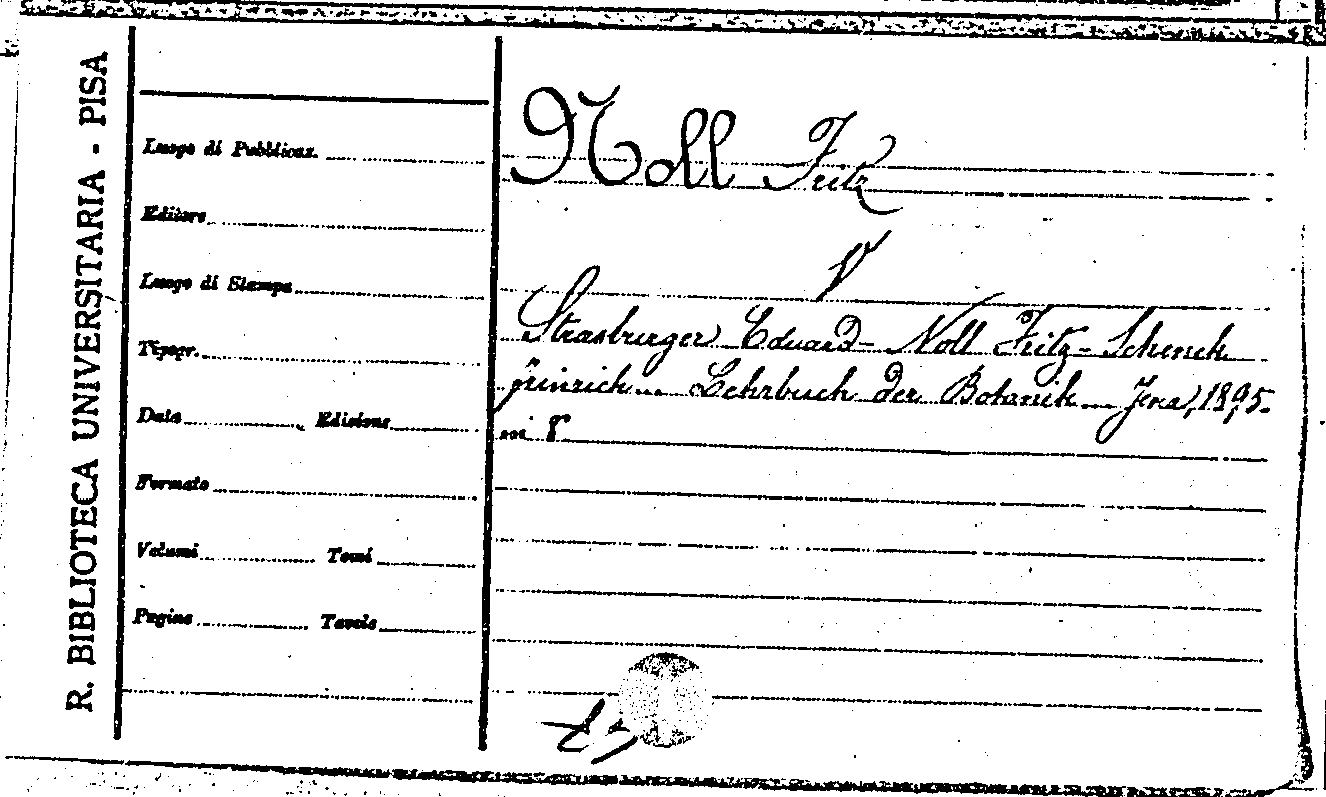 R. BIBLIOTECA UNIVERSITARIA - PISA
Luogo di Pubblicaz.
Editore
Luogo di Stampa
Tipogr.
Data Edizione
Formato
Volumi Tomi
Pagine Tavole
Noll Fritz
V
Strasburger Eduard - Noll Fritz - Schenck
Heinrich... Lehrbuch der Botanik... Jena, 1895.
in 8